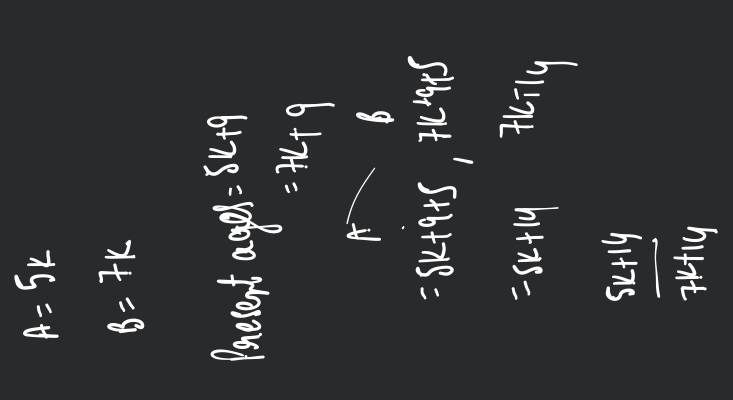 A = 5K
B = 7K
Present ages = 5K+9
= 7K+9
A B
= 5K+9+5 , 7K+9+5
= 5K+14 7K+14
5K+14
7K+14